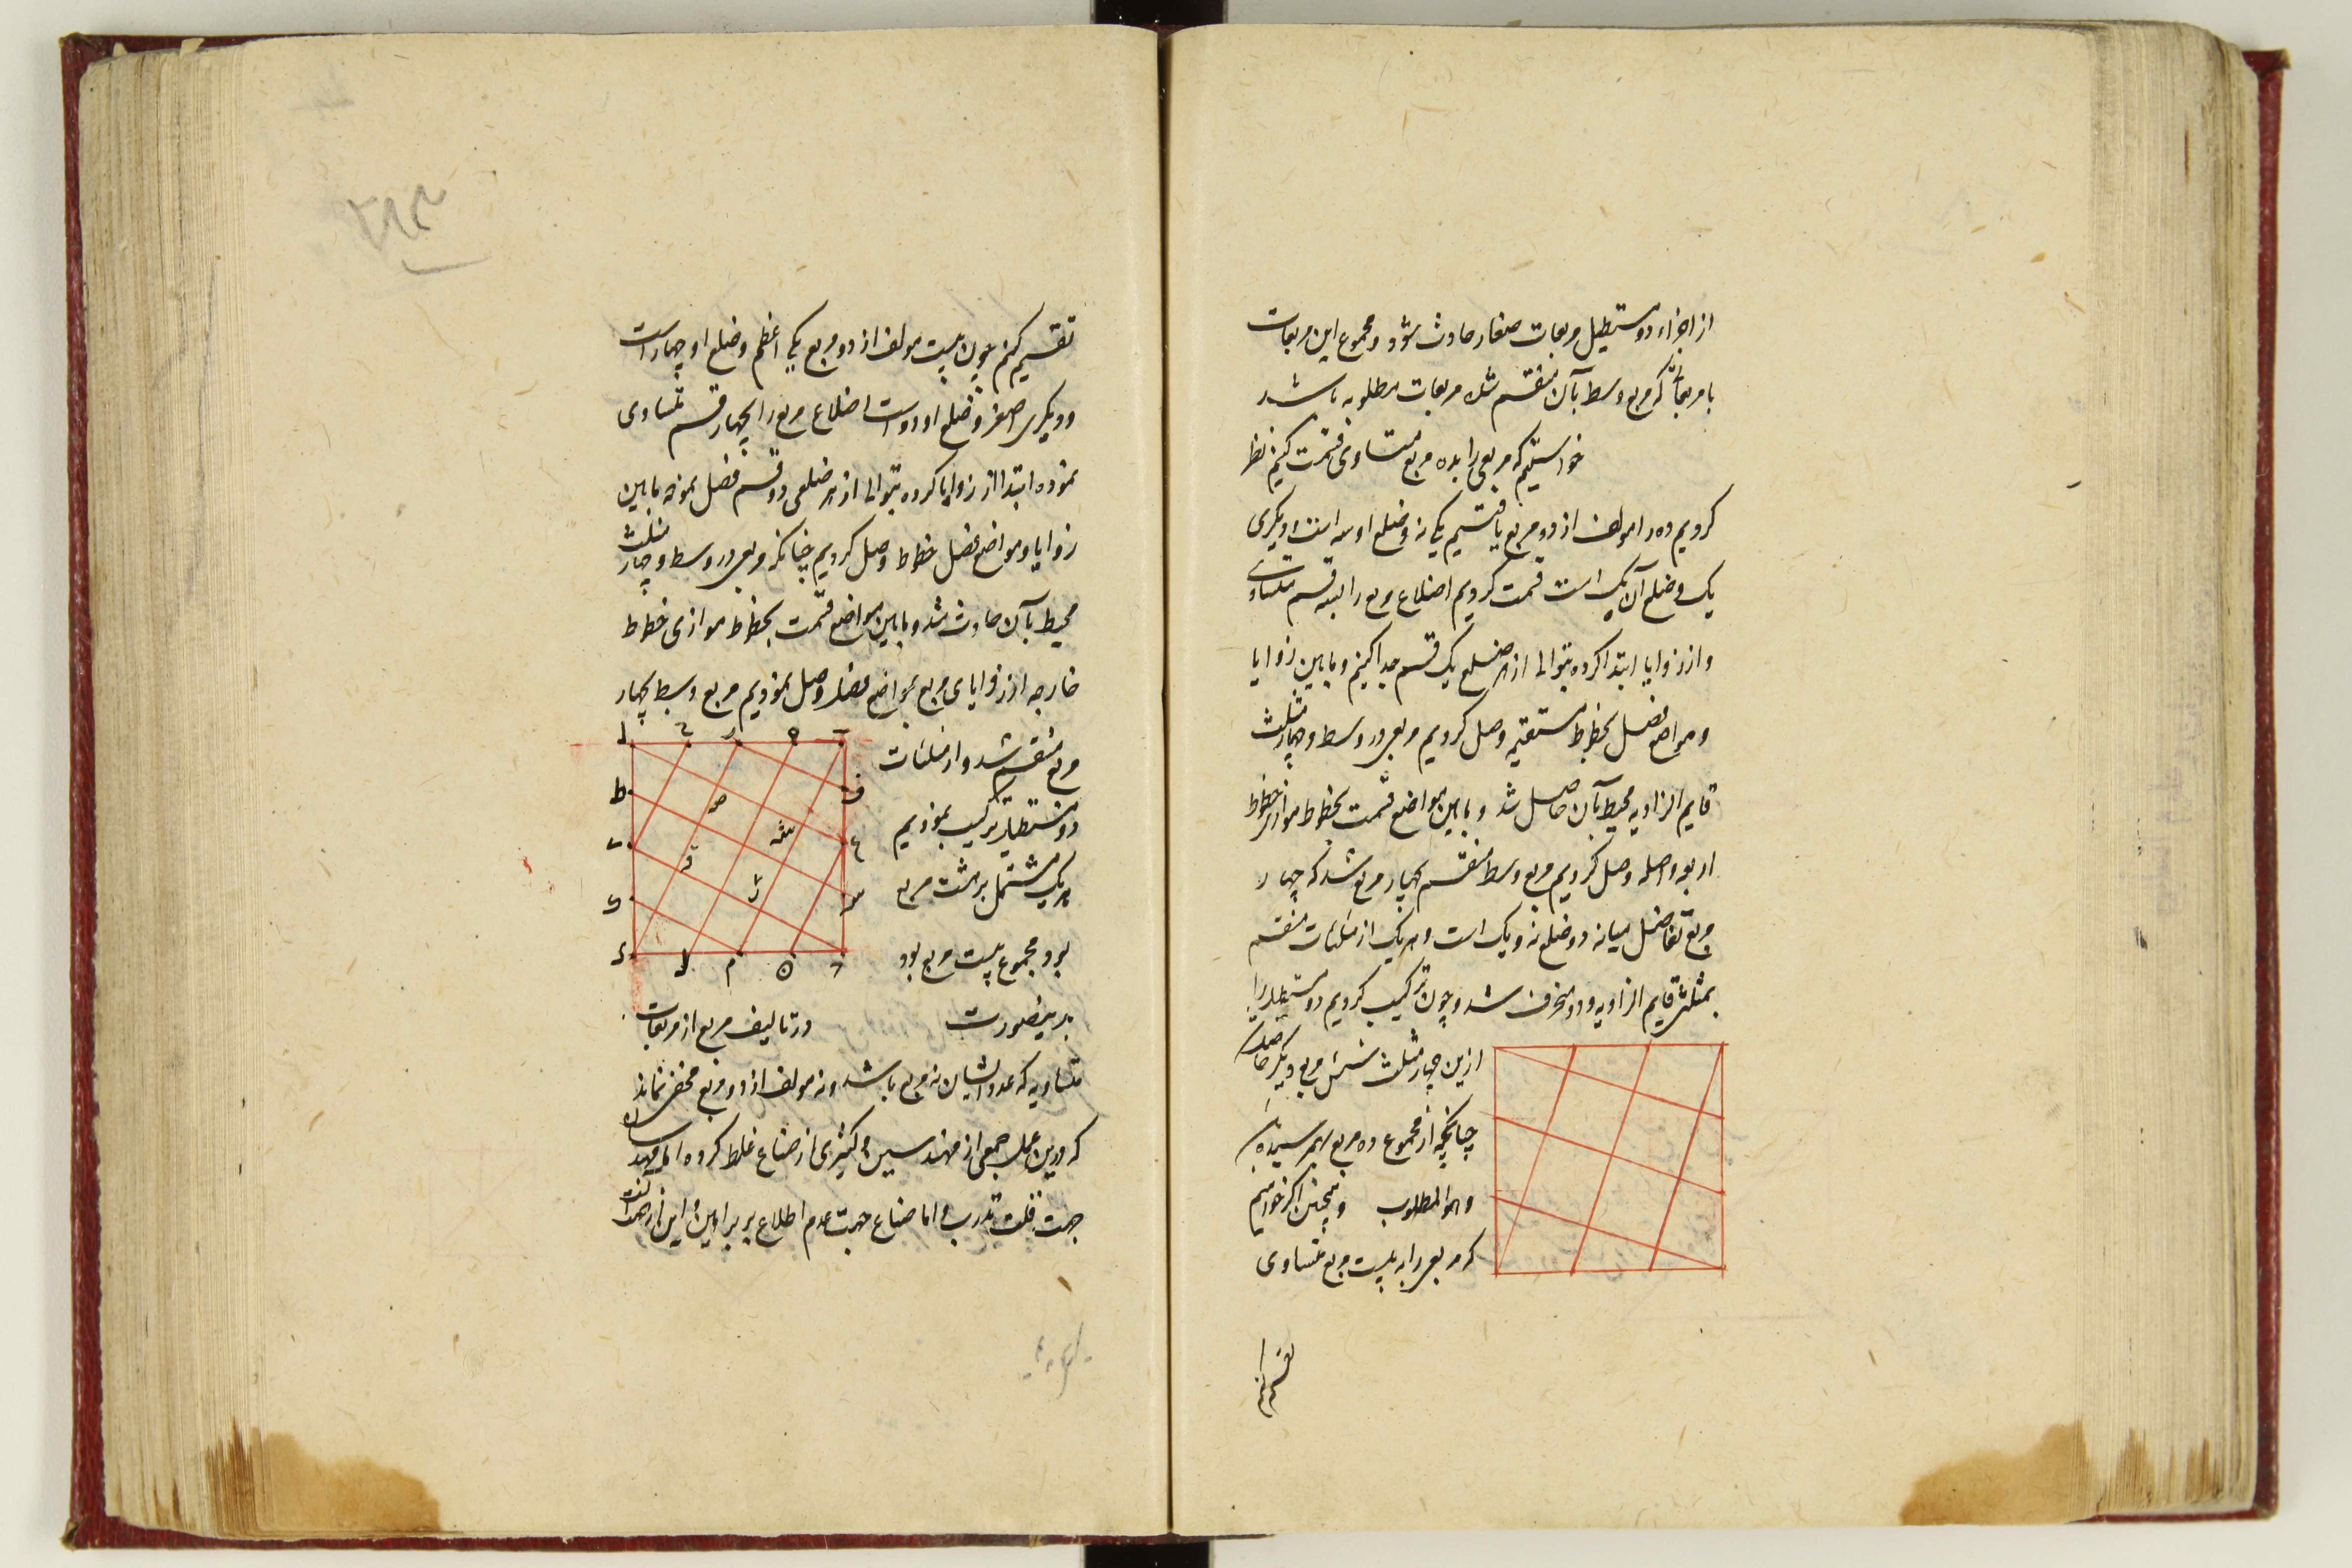 از اجزاء دو مستطیل مربعات صغار حادث شود و مجموع این مربعات
با مربعاتی که مربع وسط بآن منقسم شد مربعات مطلوبه باشد
خواستیم که مربعی را بده مربع متساوی قسمت کنیم نظر
کردیم ده را مولف از دو مربع یافتیم یکی نه و ضلع او سه است و دیگری
یک و ضلع آن یک است قسمت کردیم اضلاع مربع را بسه قسم متساوی
و از زوایا ابتدا کرده بتوالی از هر ضلع یک قسم جدا کنیم و مابین زوایا
و مواضع فصل بخطوط مستقیمه وصل کردیم مربعی در وسط و چهار مثلث
قایم الزاویه محیط بآن حاصل شد و مابین مواضع قسمت بخطوط موازی خطوط
اربعه واصله وصل کردیم مربع وسط منقسم بچهار مربع شد که چهار
مربع تفاضل میانه دو ضلع نه و یک است و هر یک از مثلثات منقسم
بمثلثی قایم الزاویه و دو منحرف شد و چون ترکیب کردیم دو مستطیل را
ازین چهار مثلث شش مربع دیگر حاصل
چنانچه از مجموع ده مربع بهم رسیده
و هو المطلوب و همچنین اگر خواهیم
که مربعی را به بیست مربع متساوی
تقسیم کنیم
تقسیم کنیم چون بیست مولف از دو مربع یکی اعظم و ضلع او چهار است
و دیگری اصغر و ضلع او دو است اضلاع مربع را بچهار قسم متساوی
نموده ابتدا از زوایا کرده بتوالی از هر ضلعی دو قسم فصل نموده مابین
زوایا و مواضع فصل خطوط وصل کردیم چنانکه مربعی در وسط و چهار مثلث
محیط بآن حادث شد و مابین مواضع قسمت بخطوط موازی خطوط
خارجه از زوایای مربع بمواضع فصل وصل نمودیم مربع وسط بچهار
مربع منقسم شد و از مثلثات
دو مستطیل ترکیب نمودیم
هر یک مشتمل بر هشت مربع
بود مجموع بیست مربع بود
بدینصورت در تالیف مربع از مربعات
متساویه که عدد ایشان نه مربع باشد و نه مولف از دو مربع مخفی نماند
که درین عمل جمعی از مهندسین و کثیری از صناع غلط کرده اند
جهت قلت تدرب و اما صناع جهت عدم اطلاع بر براهین